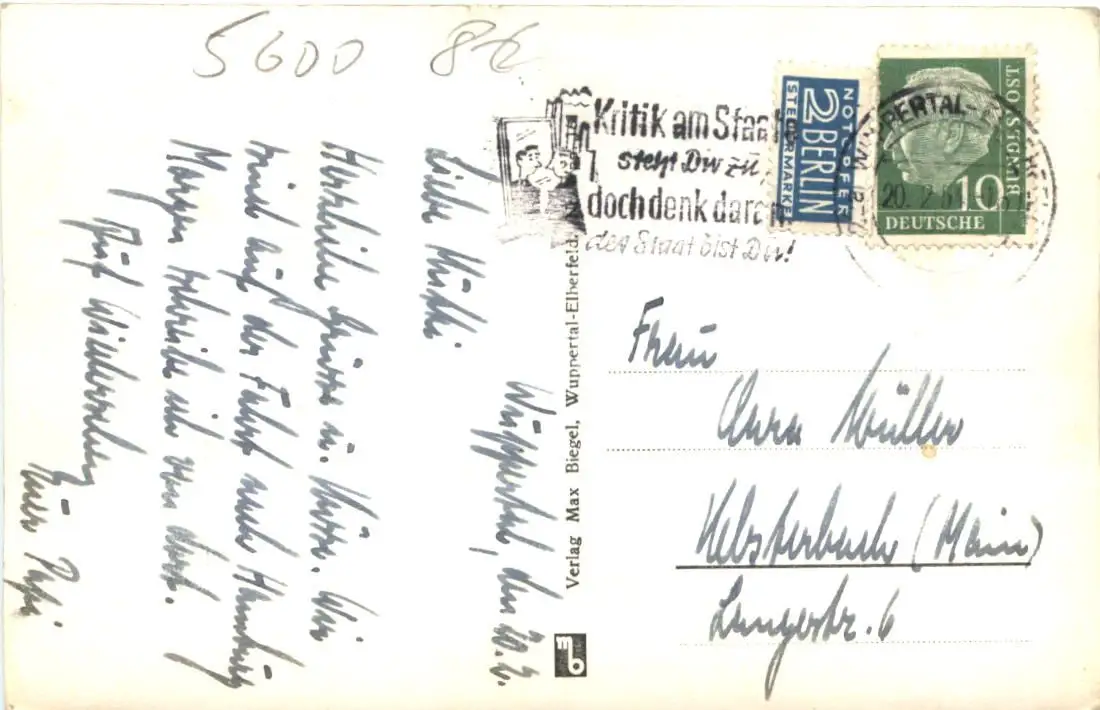 5600 8€
Kritik am Staate
steht Dir zu,
doch denk daran
der Staat bist Du!
NOTOPFER
2 BERLIN
STEUERMARKE
WUPPERTAL-
20. 2
10
DEUTSCHE
BUNDESPOST
Wuppertal, den 20.2.
Liebe Mutti
Herzliche Grüsse u. Küsse. Wir
sind auf der Fahrt nach Hamburg
Morgen schreibe ich von dort.
Auf Wiedersehen
Euer Papi
Verlag Max Biegel, Wuppertal-Elberfeld
mb
Frau
Anna Müller
Kelsterbach (Main)
Langestr. 6